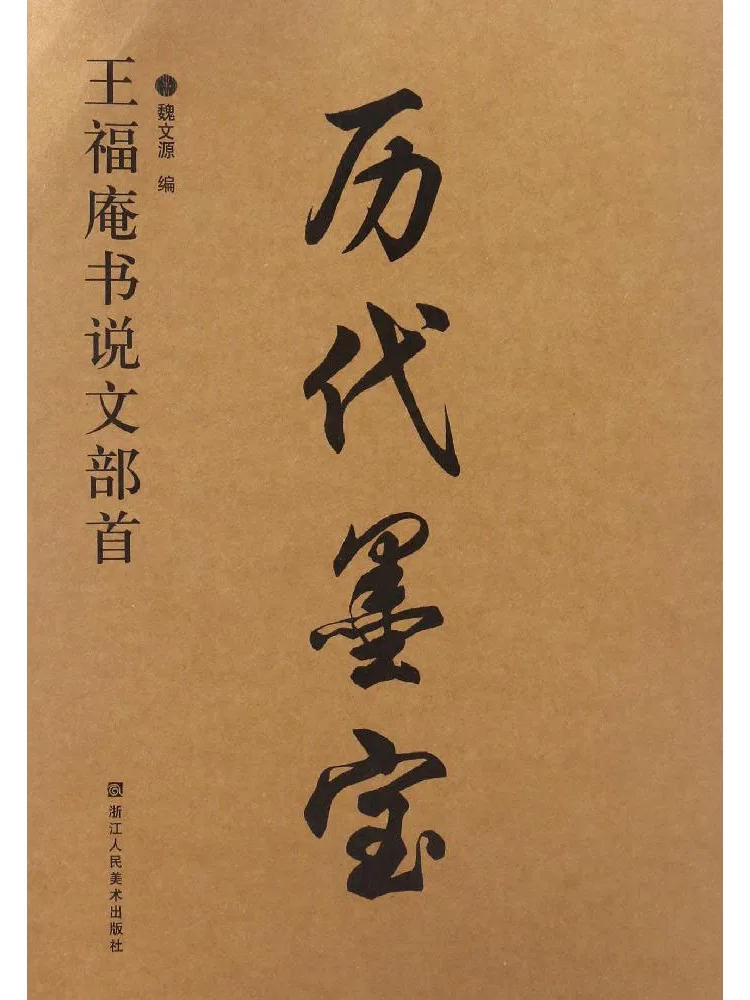 历代墨宝
魏文源 编
王福庵书说文部首
浙江人民美术出版社